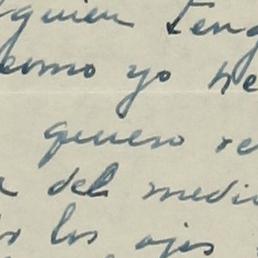 alguien teng
como yo he
quiero re
a del medio
los ojos